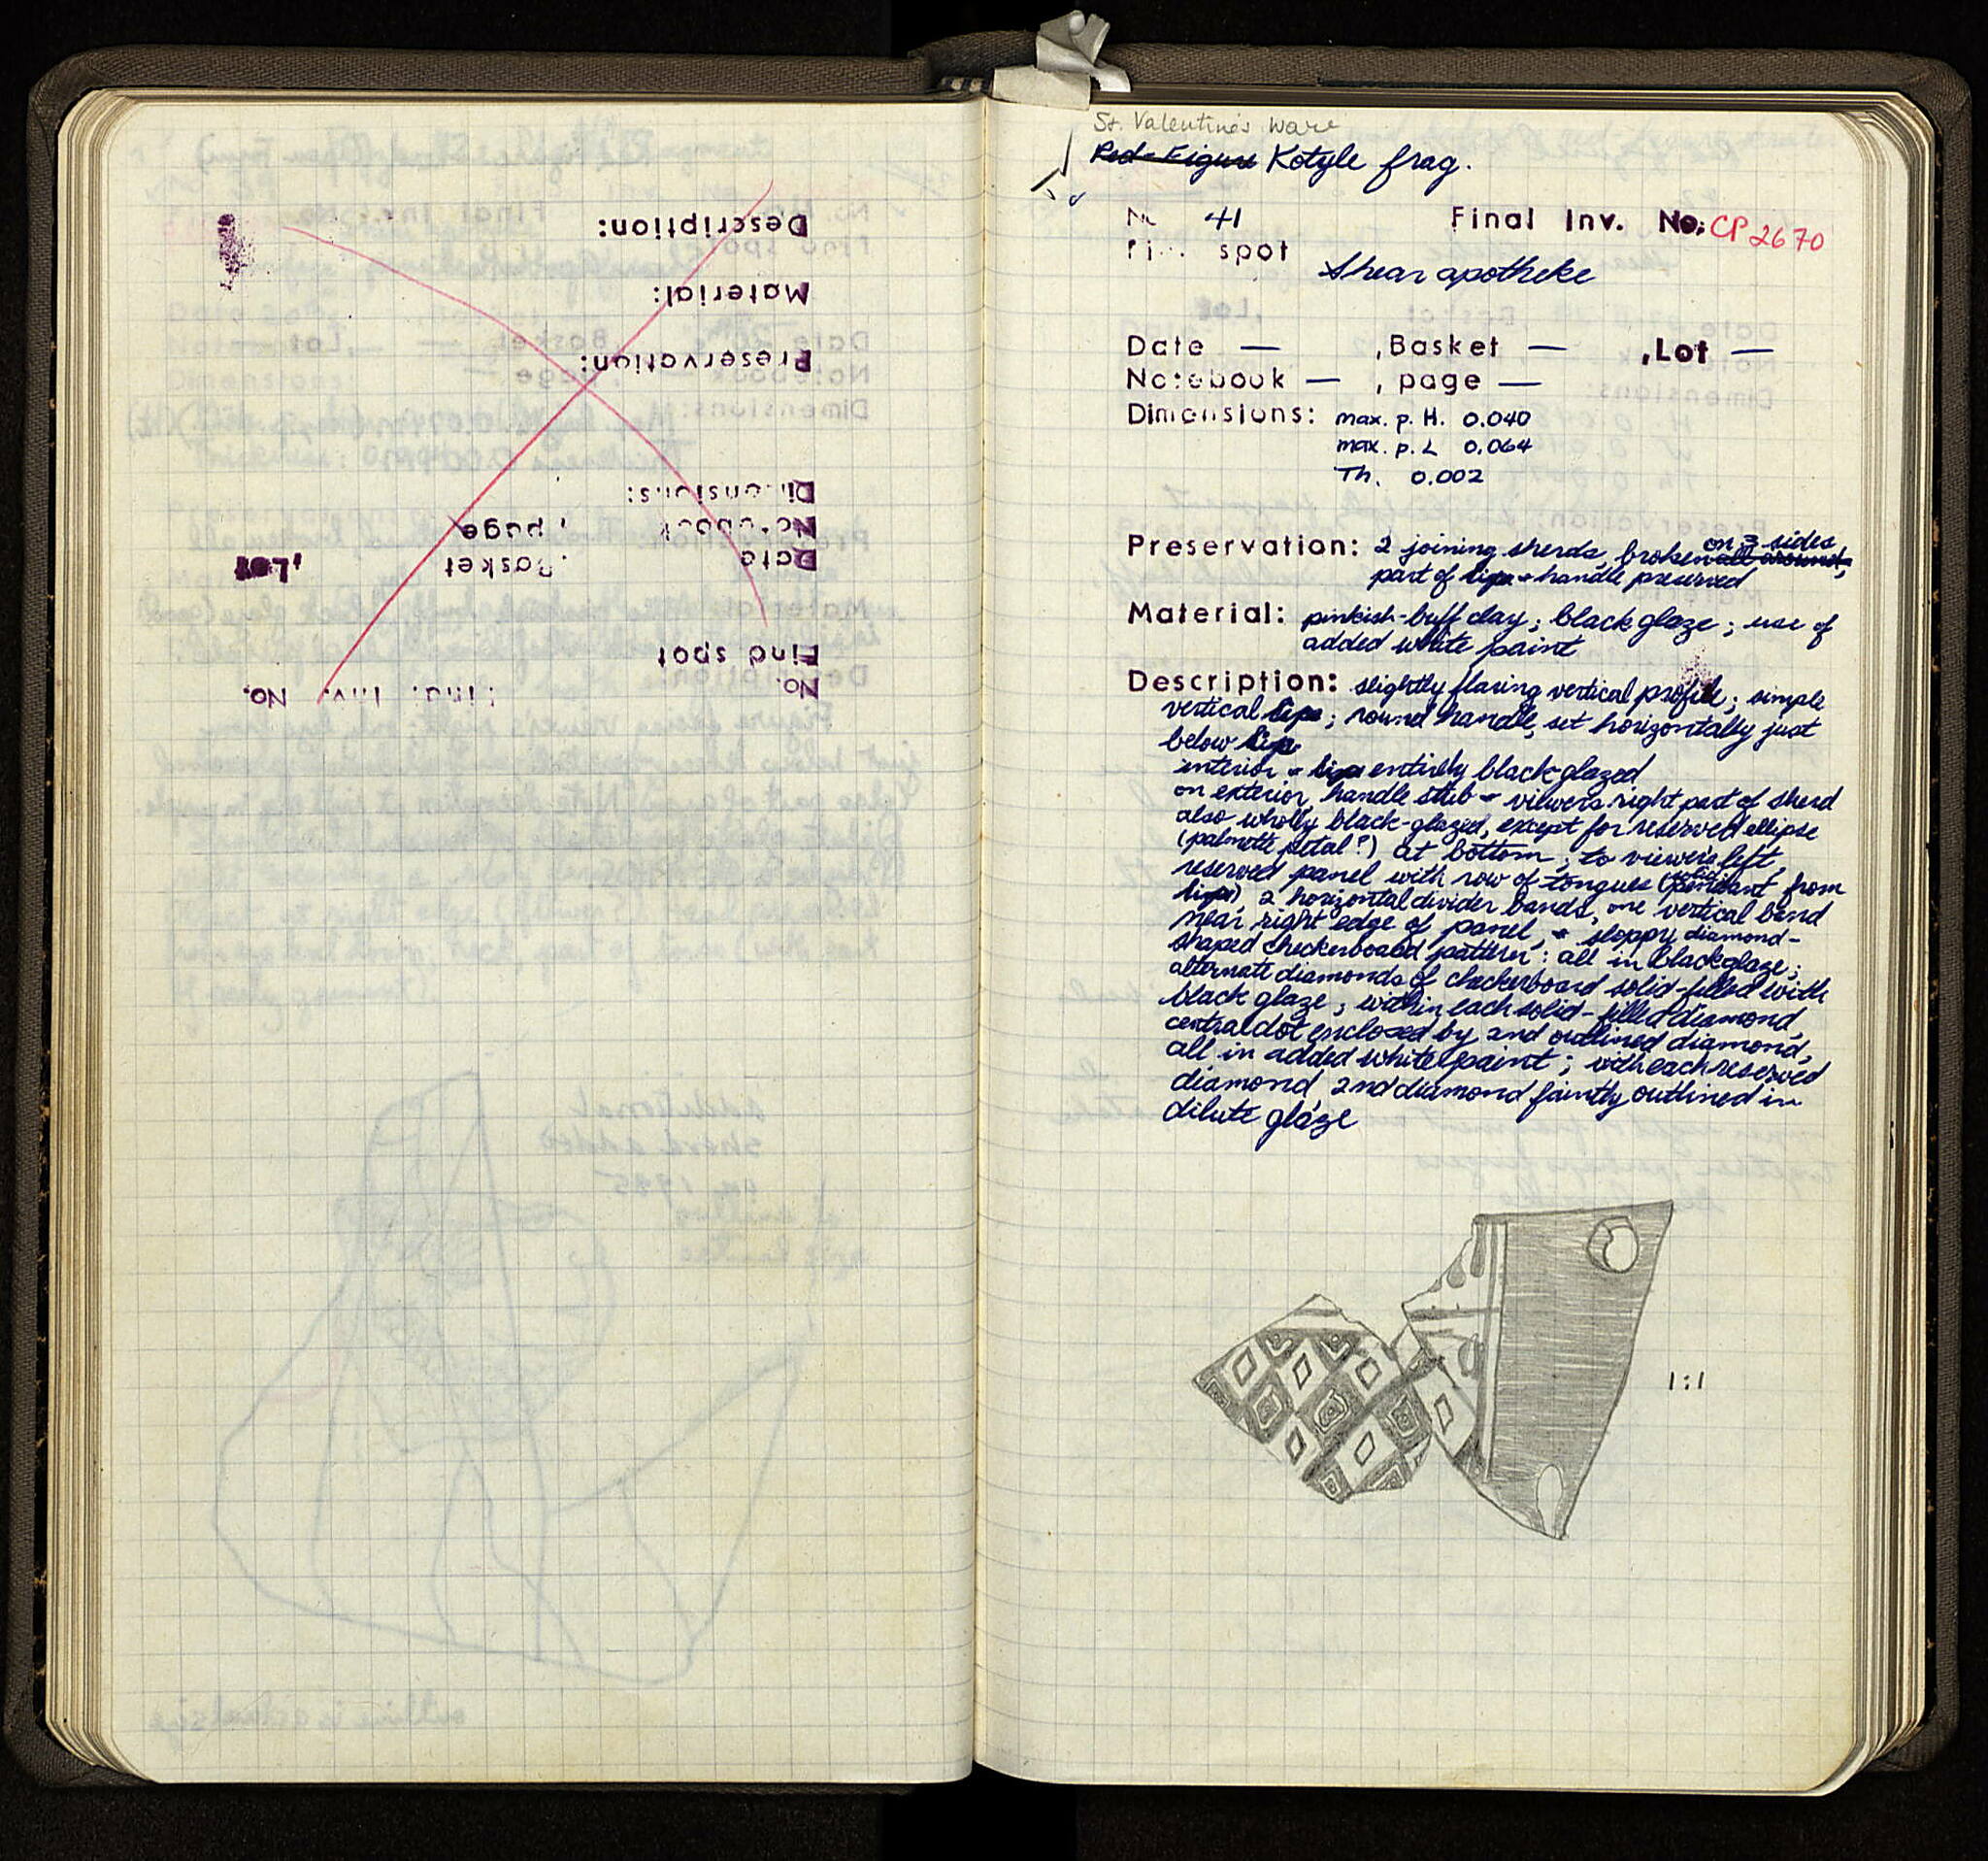 Description:
Material:
Preservation:
Dimensions:
Notebook , page
Date , Basket , Lot
Find spot
No. Final Inv. No.
St. Valentine's Ware
Red-Figure Kotyle frag.
No 41 Final Inv. No: CP 2670
Find spot
Shear apotheke
Date — , Basket — , Lot —
Notebook — , page —
Dimensions: max. p. H. 0.040
max. p. L 0.064
Th. 0.002
on 3 sides
Preservation: 2 joining sherds, broken all around,
part of lip + handle preserved
Material: pinkish-buff clay; black glaze; use of
added white paint
Description: slightly flaring vertical profile; simple
vertical lip; round handle, set horizontally just
below lip
interior + lip entirely black-glazed
on exterior, handle stub + viewer's right part of sherd
also wholly black-glazed, except for reserved ellipse
(palmette petal?) at bottom; to viewer's left,
reserved panel with row of tongues (pendant from
lip), 2 horizontal divider bands, one vertical band
near right edge of panel, + sloppy diamond-
shaped checkerboard pattern: all in black glaze;
alternate diamonds of checkerboard solid-filled with
black glaze; within each solid-filled diamond,
central dot enclosed by 2nd outlined diamond,
all in added white paint; with each reserved
diamond 2nd diamond faintly outlined in
dilute glaze
1:1